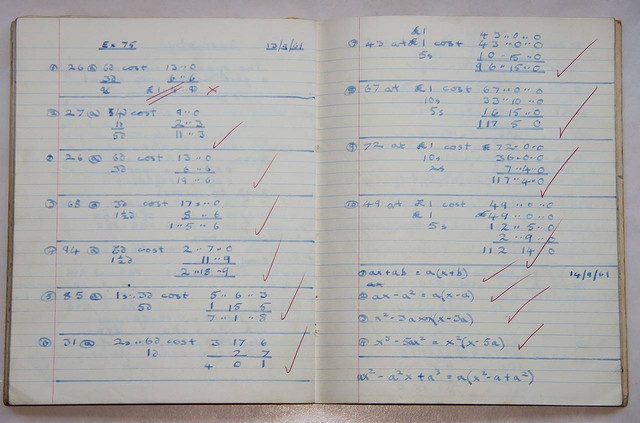 Ex 75 13/9/61
26 @ 6d cost 13..0
3d 6-6
27 @ 5½d cost 9-0
2..3
5d 11..3
26 @ 6d cost 13-0
3d 6-6
19-6
68 @ 3d cost 17s..0
1½d 8-6
1-5-6
94 @ 6d cost 2-7-0
1½d 11..9
2-18-9
85 @ 1s..3d cost 5..6..3
5d 1 15 5
7-1-8
31 @ 2s..6d cost 3 17 6
1d 2 7
4 0 1
£1 43..0..0
43 at £1 cost 43..0..0
5s 10-15-0
96-15-0
67 at £1 cost 67..0..0
10s 33-10..0
5s 16 15..0
117 5 0
72 at £1 cost £72-0-0
10s 36-0-0
2s 7-4-0
117-4-0
49 at £1 cost 49..0..0
£1 49..0..0
5s 12..5..0
2..9..0
112 14 0
ax+ab = a(x+b) 14/9/61
ax
ax-a² = a(x-a)
x²-3ax=x(x-3a)
x³-5ax² = x²(x-5a)
ax²-a²x+a³ = a(x²-a+a²)